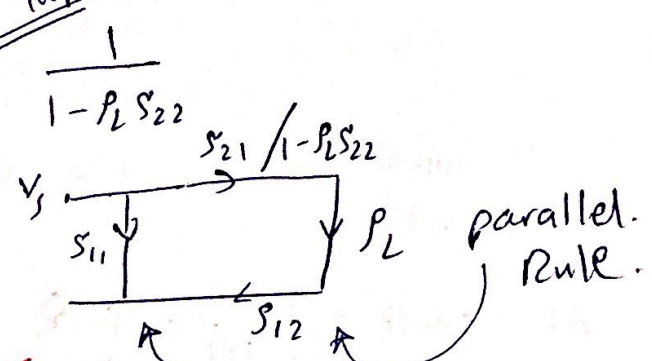 1
1 - ρL S22
S21 / 1 - ρL S22
Vs
S11
ρL
parallel.
Rule.
S12